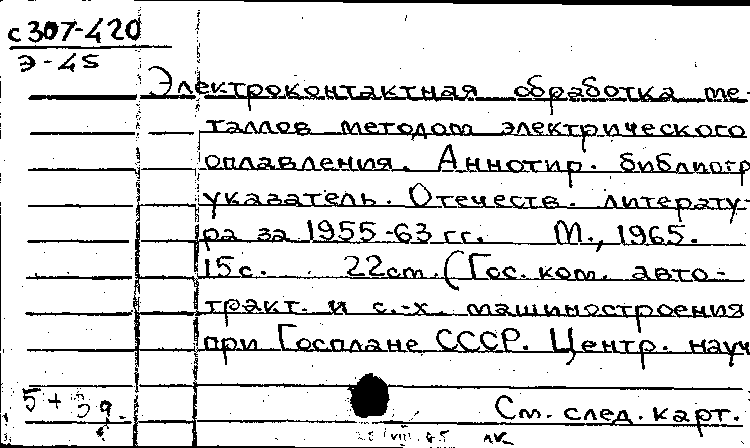 с307-420
Э-45
Электроконтактная обработка ме-
таллов методом электрического
оплавления. Аннотир. библиогр
указатель. Отечеств. литерату-
ра за 1955-63 гг. М., 1965.
15 с. 22 см. (Гос. ком. авто-
тракт. и с.-х. машиностроения
при Госплане СССР. Центр. науч
См. след. карт.